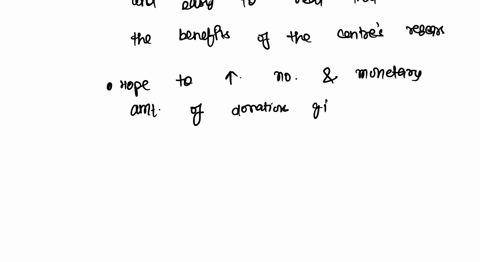 to
the benefits of the centre's resear
• Hope to ↑ no. & monetary
amt. of donation gi